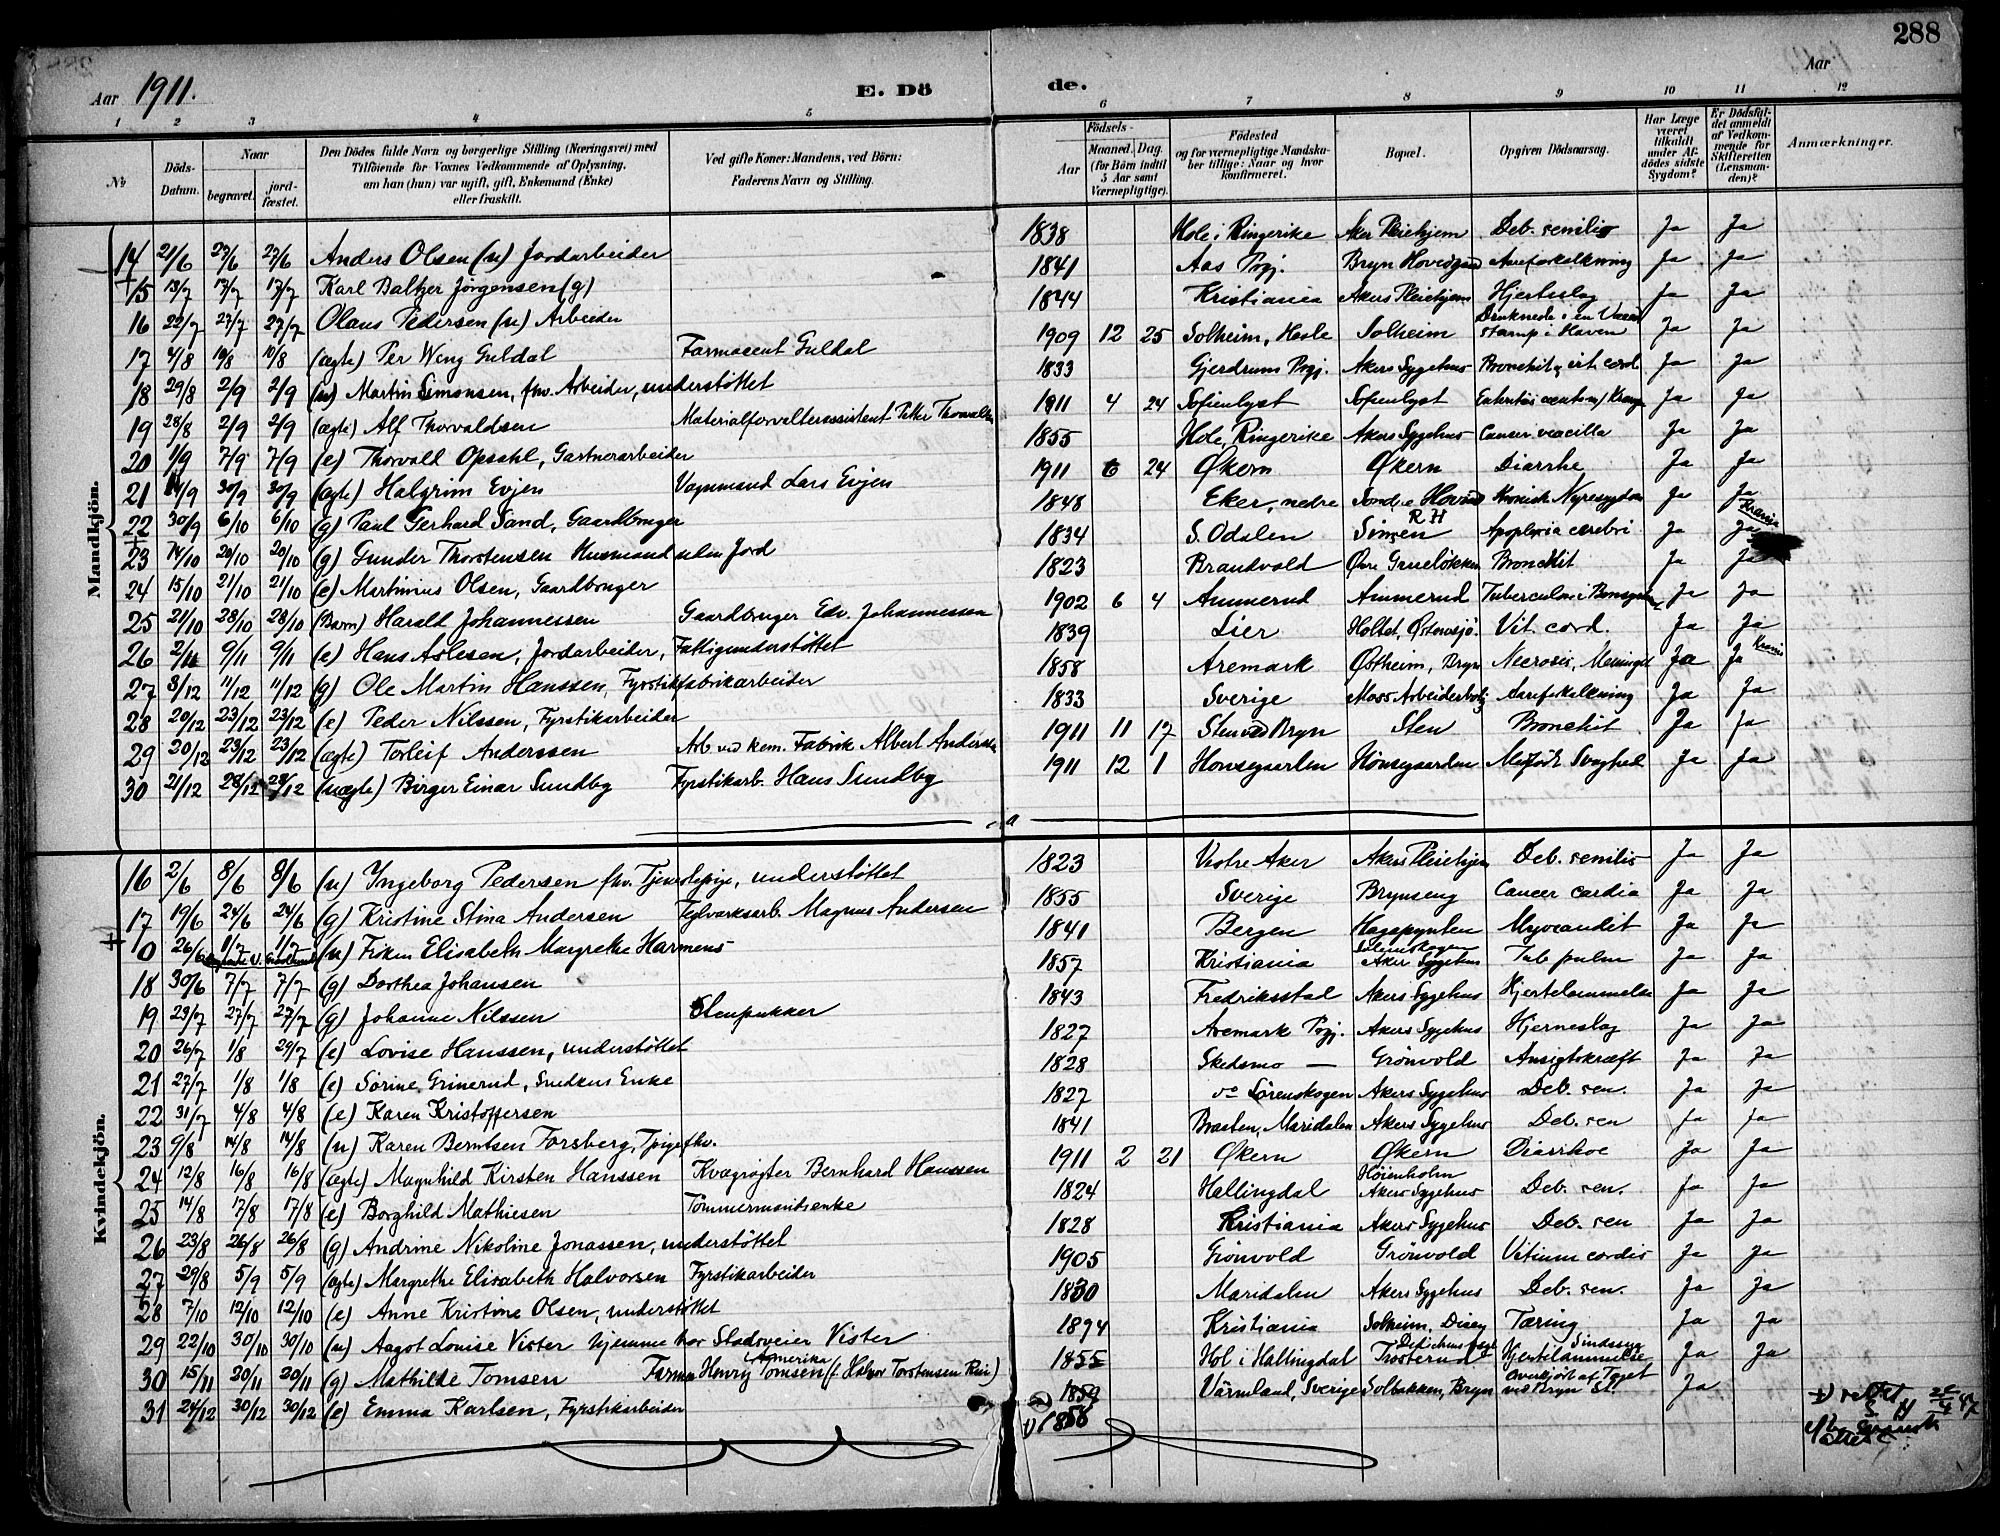 288
Aar 1911. E. Dö de. Aar
1 2 3 4 5 6 7 8 9 10 11 12
№ Döds-Datum. Naar begravet. jordfæstet. Den Dödes fulde Navn og borgerlige Stilling (Næringsvei) med Tilföiende for Voxnes Vedkommende af Oplysning, om han (hun) var ugift, gift, Enkemand (Enke) eller fraskilt. Ved gifte Koner: Mandens, ved Börn: Faderens Navn og Stilling. Födsels- Aar Maaned. Dag. (for Börn indtil 5 Aar samt Værnepligtige). Födested og for værnepligtige Mandskaber tillige: Naar og hvor konfirmeret. Bopæl. Opgiven Dödsaarsag. Har Læge været tilkaldt under Afdödes sidste Sygdom? Er Dödsfaldet anmeldt af Vedkommende for Skifteretten (Lensmanden)? Anmærkninger.
Mandkjön.
14 21/6 27/6 27/6 Anders Olsen (u) Jordarbeider 1838 Hole i Ringerike Aker Pleiehjem Deb. senilis Ja Ja
15 13/7 17/7 17/7 Karl Baltzer Jörgensen (g) 1841 Aas Prgj. Bryn Hovedgaard Aareforkalkning Ja Ja
16 22/7 27/7 27/7 Olaus Pedersen (u) Arbeider 1844 Kristiania Akers Pleiehjem Hjerteslag Ja Ja
17 4/8 10/8 10/8 (ægte) Per Weng Guldal Farmaceut Guldal 1909 12 25 Solheim, Hasle Solheim Druknede i en Vand stamp i Haven Ja Ja
18 29/8 2/9 2/9 (u) Martin Simonsen, fhv. Arbeider, understöttet 1833 Gjerdrum Prgj. Akers Sygehus Bronchit, vit. cord. Ja Ja
19 28/8 2/9 2/9 (ægte) Alf Thorvaldsen Materialforvalterassistent Petter Thorvaldsen 1911 4 24 Sofienlyst Sofienlyst Ja Ja
20 1/9 7/9 7/9 (e) Thorvald Opsahl, Gartnerarbeider 1855 Hole, Ringerike Akers Sygehus Cancer Ja Ja
21 24/9 30/9 30/9 (ægte) Halgrim Evjen Vognmand Lars Evjen 1911 6 24 Økern Økern Diarrhe Ja Ja
22 30/9 6/10 6/10 (g) Paul Gerhard Sand, Gaardbruger 1848 Eker, nedre Søndre Hovin Kronisk Nyresygdom Ja Ja
23 14/10 20/10 20/10 (g) Gunder Thorstensen Husmand uden Jord 1834 S. Odalen Sinsen RH Apoplexia cerebri Ja Ja
24 15/10 21/10 21/10 (e) Martinius Olsen, Gaardbruger 1823 Brandvold Øvre Grueløkken Bronchit Ja Ja
25 21/10 28/10 28/10 (Barn) Harald Johannessen Gaardbruger Edv. Johannessen 1902 6 4 Ammerud Ammerud Ja Ja
26 2/11 9/11 9/11 (e) Hans Aslesen, Jordarbeider, Fattigunderstöttet 1839 Lier Holtet, Østensjö. Vit. cord. Ja Ja
27 3/12 11/12 11/12 (g) Ole Martin Hanssen, Fyrstikfabrikarbeider 1858 Aremark Østheim, Bryn Necrosis, Meningit Ja Ja
28 20/12 23/12 23/12 (e) Peder Nilssen, Fyrstikarbeider 1833 Sverige Moss Arbeiderbolig Aareforkalkning Ja Ja
29 20/12 23/12 23/12 (ægte) Torleif Anderssen Arb. ved kem. Fabrik Albert Anderssen 1911 11 17 Sten ved Bryn Sten Bronchit Ja Ja
30 21/12 28/12 28/12 (uægte) Birger Einar Sundby Fyrstikarb. Hans Sundby 1911 12 1 Hönsegaarden Hönsegaarden Medfödt Svaghed Ja Ja
Kvindekjön.
16 2/6 8/6 8/6 (u) Ingeborg Pedersen fhv. Tjenestepige, understöttet 1823 Vestre Aker Akers Pleiehjem Deb. senilis Ja Ja
17 19/6 24/6 24/6 (g) Kristine Stina Andersen Teglværksarb. Magnus Andersen 1855 Sverige Brynseng Cancer cardia Ja Ja
0 26/6 1/7 1/7 (u) Frøken Elisabeth Margrethe Harmens 1841 Bergen Hagapynten Myocardit Ja Ja
18 30/6 7/7 7/7 (g) Dorthea Johansen 1857 Kristiania Aker Sygehus Tub. pulm Ja Ja
19 23/7 27/7 27/7 (g) Johanne Nilssen Stenpukker 1843 Fredriksstad Akers Sygehus Hjertelammelse Ja Ja
20 26/7 1/8 29/7 (e) Lovise Hanssen, understöttet 1827 Aremark Prgj. Akers Sygehus Hjerneslag Ja Ja
21 27/7 1/8 1/8 (e) Sörine Grinerud, Snedkers Enke 1828 Skedsmo — Grönvold Ansigtskræft Ja Ja
22 31/7 4/8 4/8 (e) Karen Kristoffersen 1827 Sörenskogen Akers Sygehus Deb. sen. Ja Ja
23 9/8 14/8 14/8 (u) Karen Berntsen Forsberg, Tpige fhv. 1841 Braaten, Maridalen Akers Sygehus Deb. sen Ja Ja
24 12/8 16/8 16/8 (ægte) Magnhild Kirsten Hanssen Kvægrøgter Bernhard Hanssen 1911 2 21 Økern Økern Diarrhoe Ja Ja
25 14/8 17/8 17/8 (e) Borghild Mathiesen Tömmermandsenke 1824 Hallingdal Höienholm Akers Sygehus Deb. sen. Ja Ja
26 23/8 26/8 26/8 (g) Andrine Nikoline Jonassen, understöttet 1828 Kristiania Akers Sygehus Deb. sen Ja Ja
27 29/8 5/9 5/9 (ægte) Margrethe Elisabeth Halvorsen Fyrstikarbeider 1905 Grönvold Grönvold Vitium cordis Ja Ja
28 7/10 12/10 12/10 (e) Anne Kristine Olsen, understöttet 1830 Maridalen Akers Sygehus Deb. sen. Ja Ja
29 22/10 30/10 30/10 (u) Aagot Louise Vister hjemme hos Stadsveier Vister 1894 Kristiania Solheim, Disen Tæring Ja Ja
30 15/11 20/11 20/11 (g) Mathilde Tomsen Farmer Henry Tomsen Amerika (f. Halvor Torstensen Rui) 1855 Hol i Hallingdal Trosterud Sindssyg Hjertelammelse Ja Ja
31 24/12 30/12 30/12 (e) Emma Karlsen, Fyrstikarbeider 1859 Värmland, Sverige Solbakken, Bryn Overkjört af Toget ved Bryn St. Ja
1) 1858
1) rettet